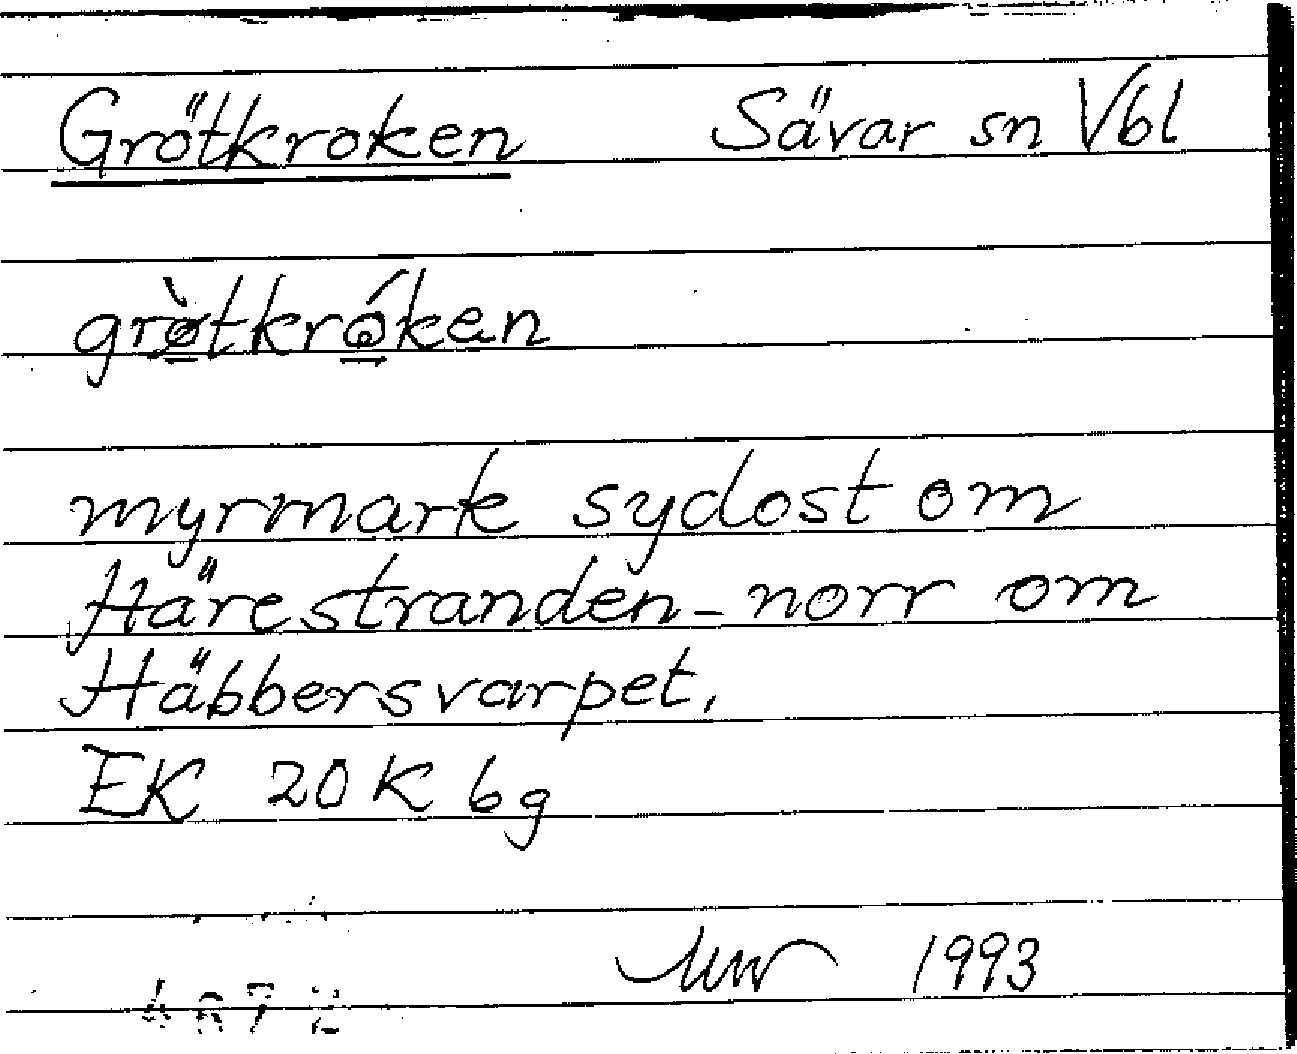 Grötkroken Sävar sn Vbl
grø̀tkrǿken
myrmark sydost om
Härestranden - norr om
Häbbersvarpet.
EK 20 K 6g
1993